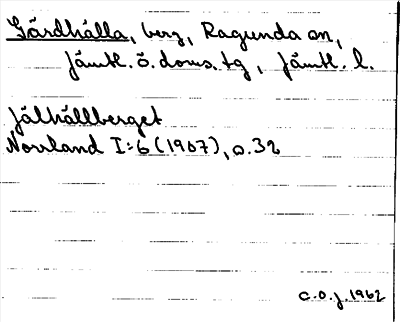 Gärdhälla, berg, Ragunda sn,
Jämtl. ö. doms. tg, Jämtl. l.
Jälhällberget
Norrland I:6 (1907), s. 32
C.O.J. 1962